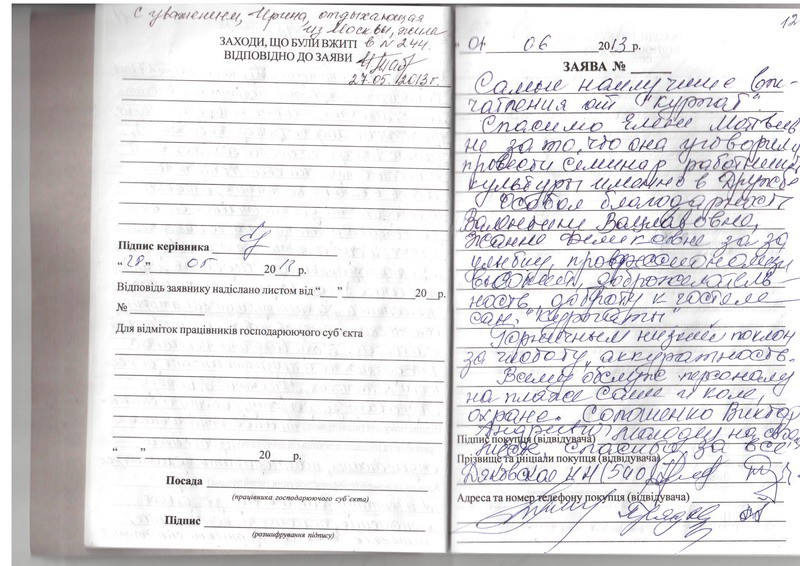 С уважением, Ирина, отдыхающая
из Москвы, жила
в N 244.
ЗАХОДИ, ЩО БУЛИ ВЖИТІ
ВІДПОВІДНО ДО ЗАЯВИ
27.05.2013г.
Підпис керівника
“28” 05 2013 р.
Відповідь заявнику надіслано листом від “___” __________ 20__р.
№
Для відміток працівників господарюючого суб`єкта
“____” __________ 20 ___ р.
Посада
(працівника господарюючого суб`єкта)
Підпис
(розшифрування підпису)
12
“01 06 2013 р.
ЗАЯВА №
Самые наилучшие впе-
чатления от "Курпат".
Спасибо Елене Матвеев
не за то, что она уговорила
провести семинар работников
культуры именно в Дружбе
Особая благодарность
Валентине Вацлавовне,
Жанне за за
душевную, профессионализм
высокий, доброжелатель-
ность, доброту к гостям
сан. "Курпаты"
Горничным низкий поклон
за заботу, аккуратность.
Всему обслуж. персоналу
на пляже Саше и Коле,
охране.
Андрей молодец на
Підпис покупця (відвідувача)
спасибо за все
Прізвище та ініціали покупця (відвідувача)
(540)
Адреса та номер телефону покупця (відвідувача)